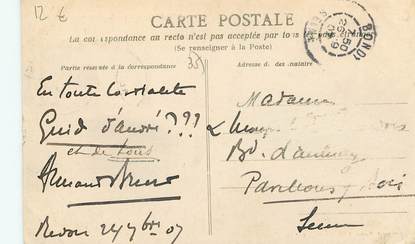 12 €
CARTE POSTALE
La correspondance au recto n'est pas acceptée par tous les pays étrangers
(Se renseigner à la Poste)
Partie réservée à la correspondance
Adresse du destinataire
33
BONDY
SEINE
En toute Cordialité
Guid d'André ???
et de tous
Madame
Bd. d'aulnay
Pavillons s/ Bois
Seine
24 7bre 07